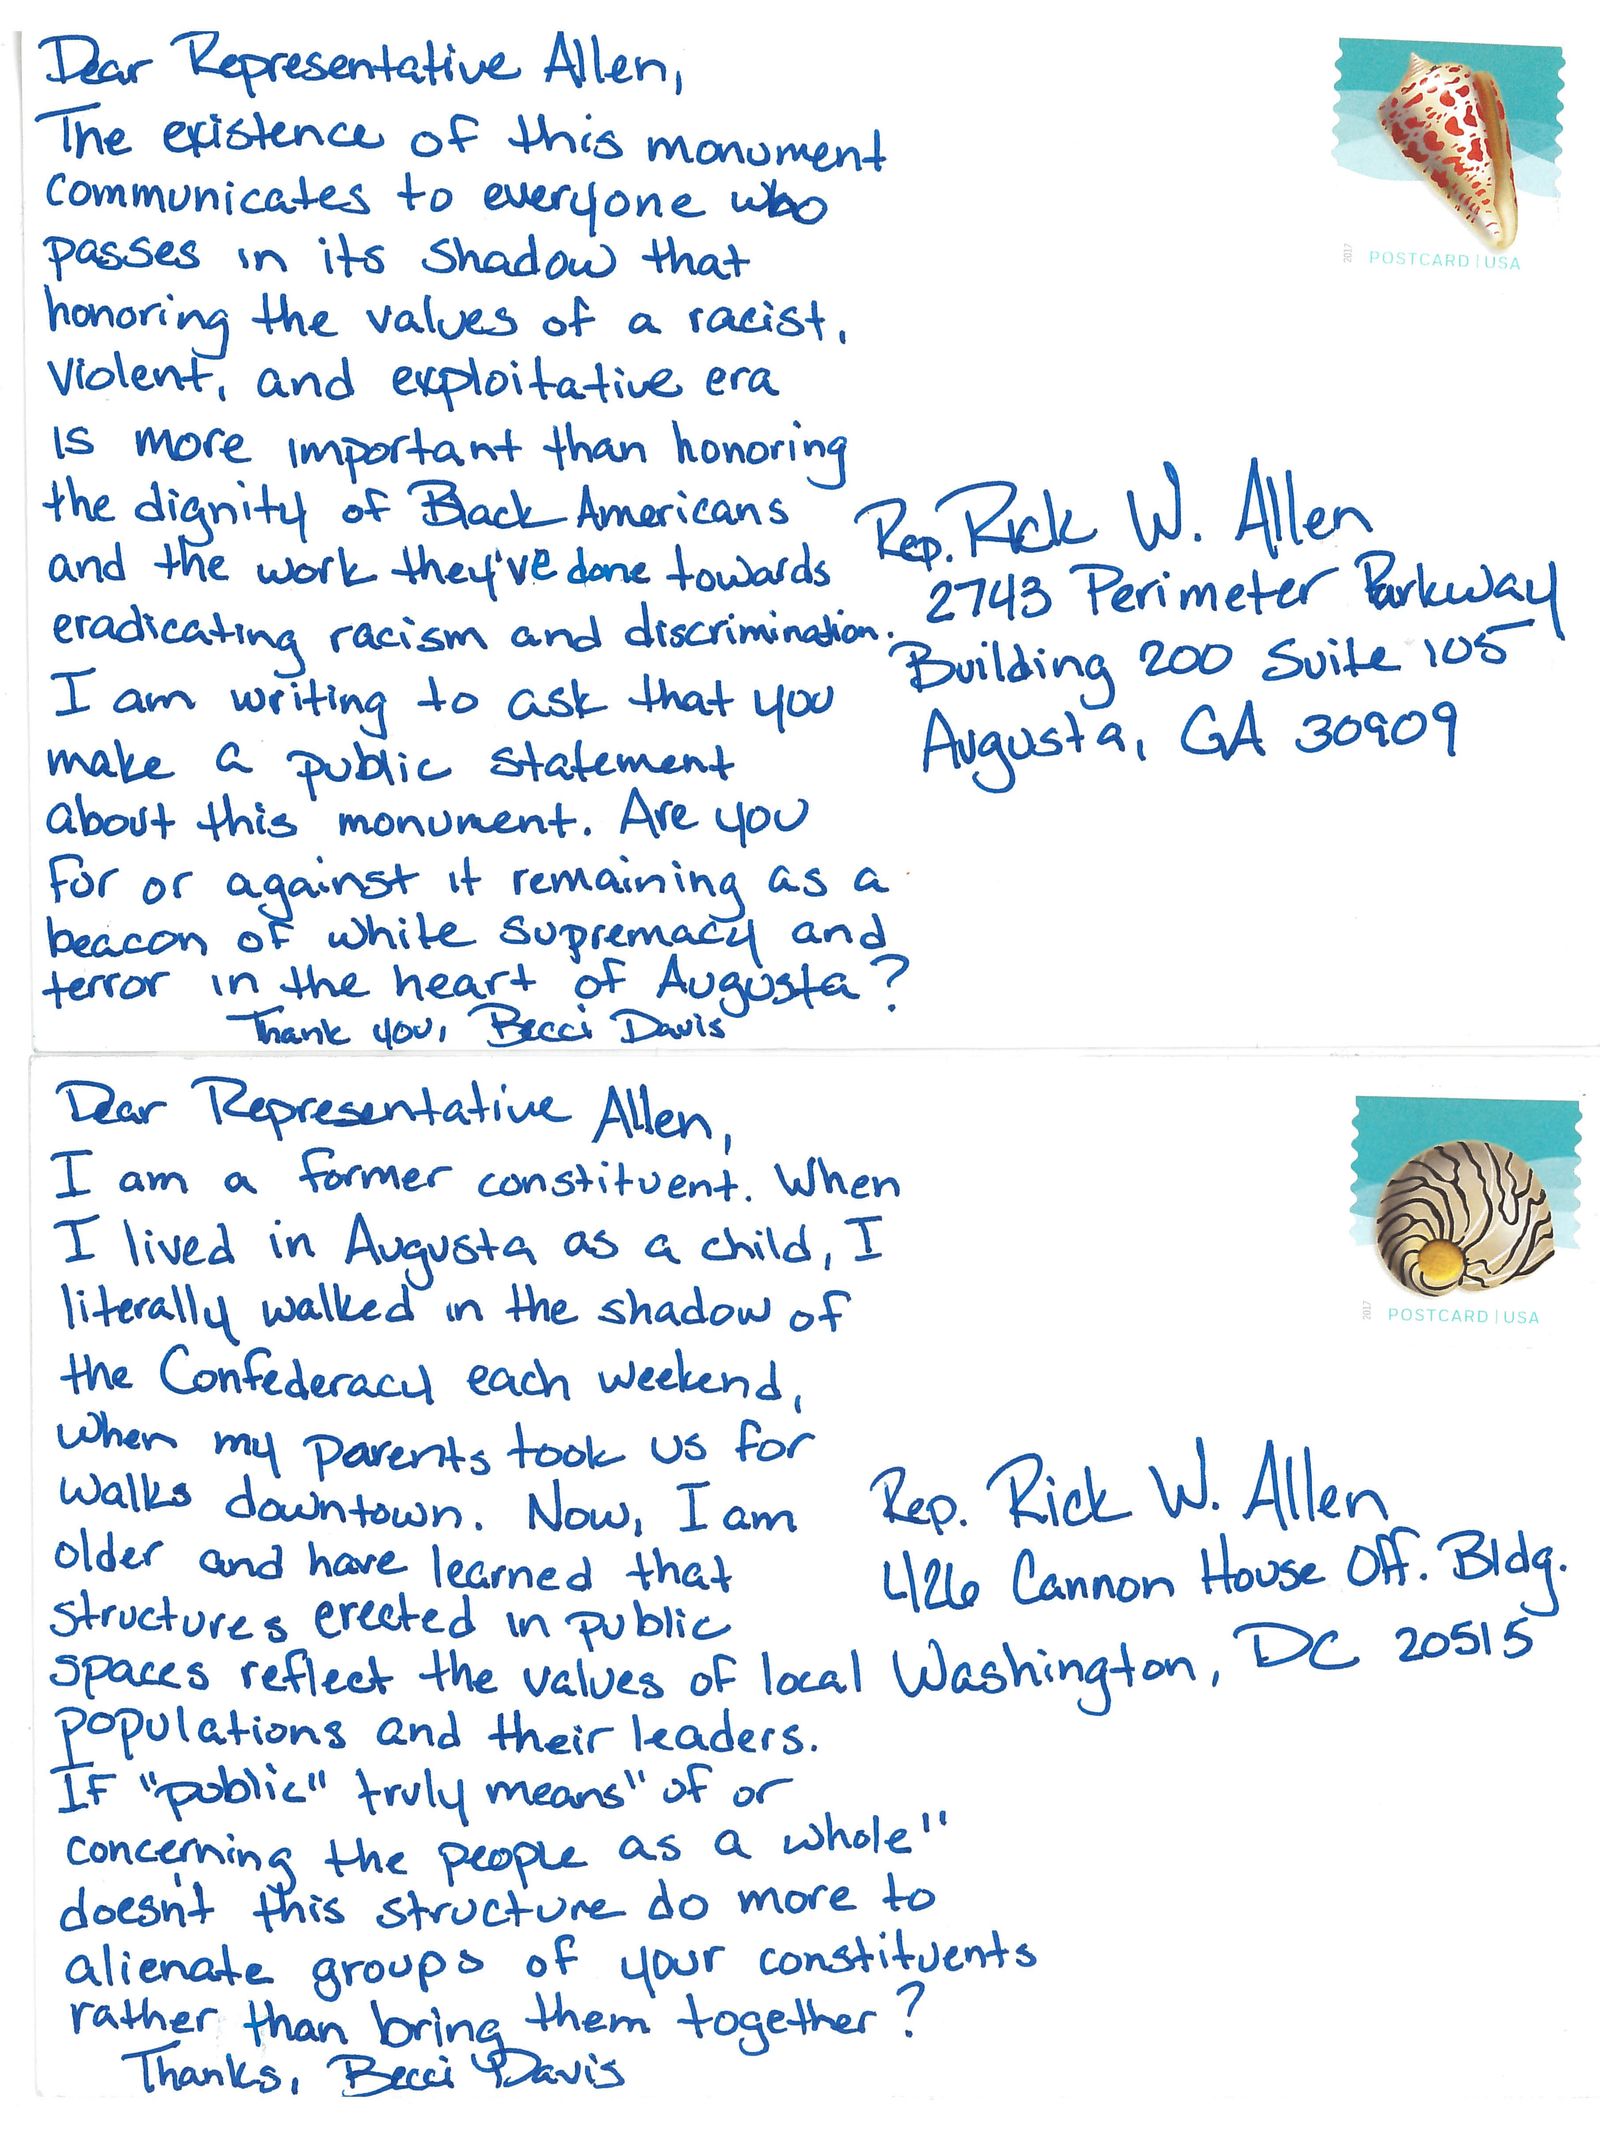 Dear Representative Allen,
The existence of this monument
communicates to everyone who
passes in its shadow that
honoring the values of a racist,
violent, and exploitative era
is more important than honoring
the dignity of Black Americans
and the work they've done towards
eradicating racism and discrimination.
I am writing to ask that you
make a public statement
about this monument. Are you
for or against it remaining as a
beacon of white supremacy and
terror in the heart of Augusta?
Thank you, Becci Davis
2017
POSTCARD | USA
Rep. Rick W. Allen
2743 Perimeter Parkway
Building 200 Suite 105
Augusta, GA 30909
Dear Representative Allen,
I am a former constituent. When
I lived in Augusta as a child, I
literally walked in the shadow of
the Confederacy each weekend,
when my parents took us for
walks downtown. Now, I am
older and have learned that
structures erected in public
spaces reflect the values of local
populations and their leaders.
If "public" truly means "of or
concerning the people as a whole"
doesn't this structure do more to
alienate groups of your constituents
rather than bring them together?
Thanks, Becci Davis
2017
POSTCARD | USA
Rep. Rick W. Allen
426 Cannon House Off. Bldg.
Washington, DC 20515